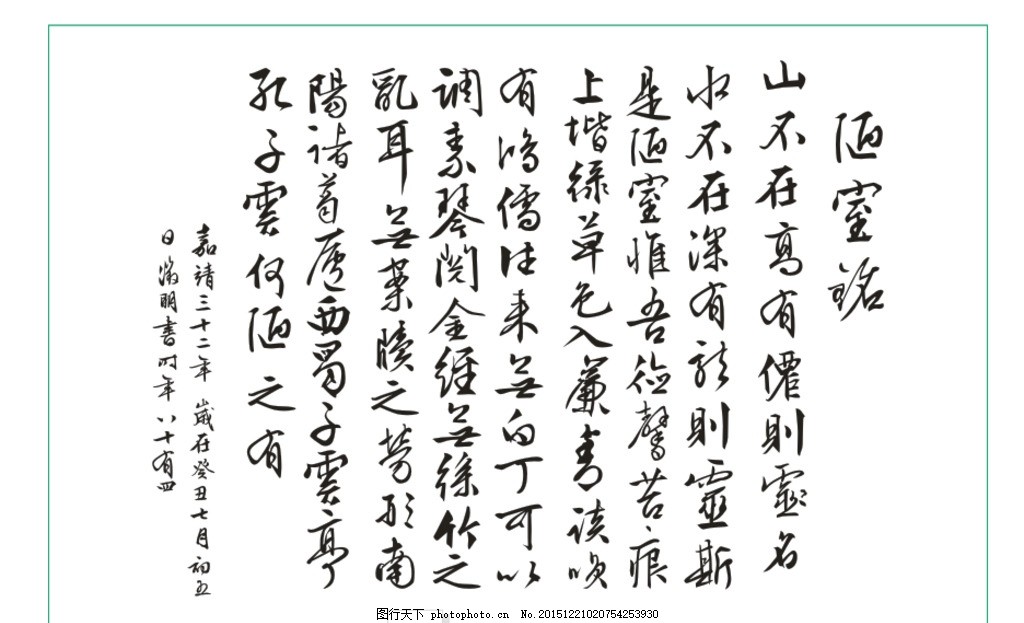 陋室銘
山不在高有僊則靈名
水不在深有龍則靈斯
是陋室惟吾德馨苔痕
上堦綠草色入簾青談咲
有鴻儒往来無白丁可以
调素琴閱金經無絲竹之
亂耳無案牘之勞形南
陽諸葛廬西蜀子雲亭
孔子雲何陋之有
嘉靖三十二年 歲在癸丑七月初五
日徵明書时年八十有四
图行天下 photophoto.cn No.20151221020754253930